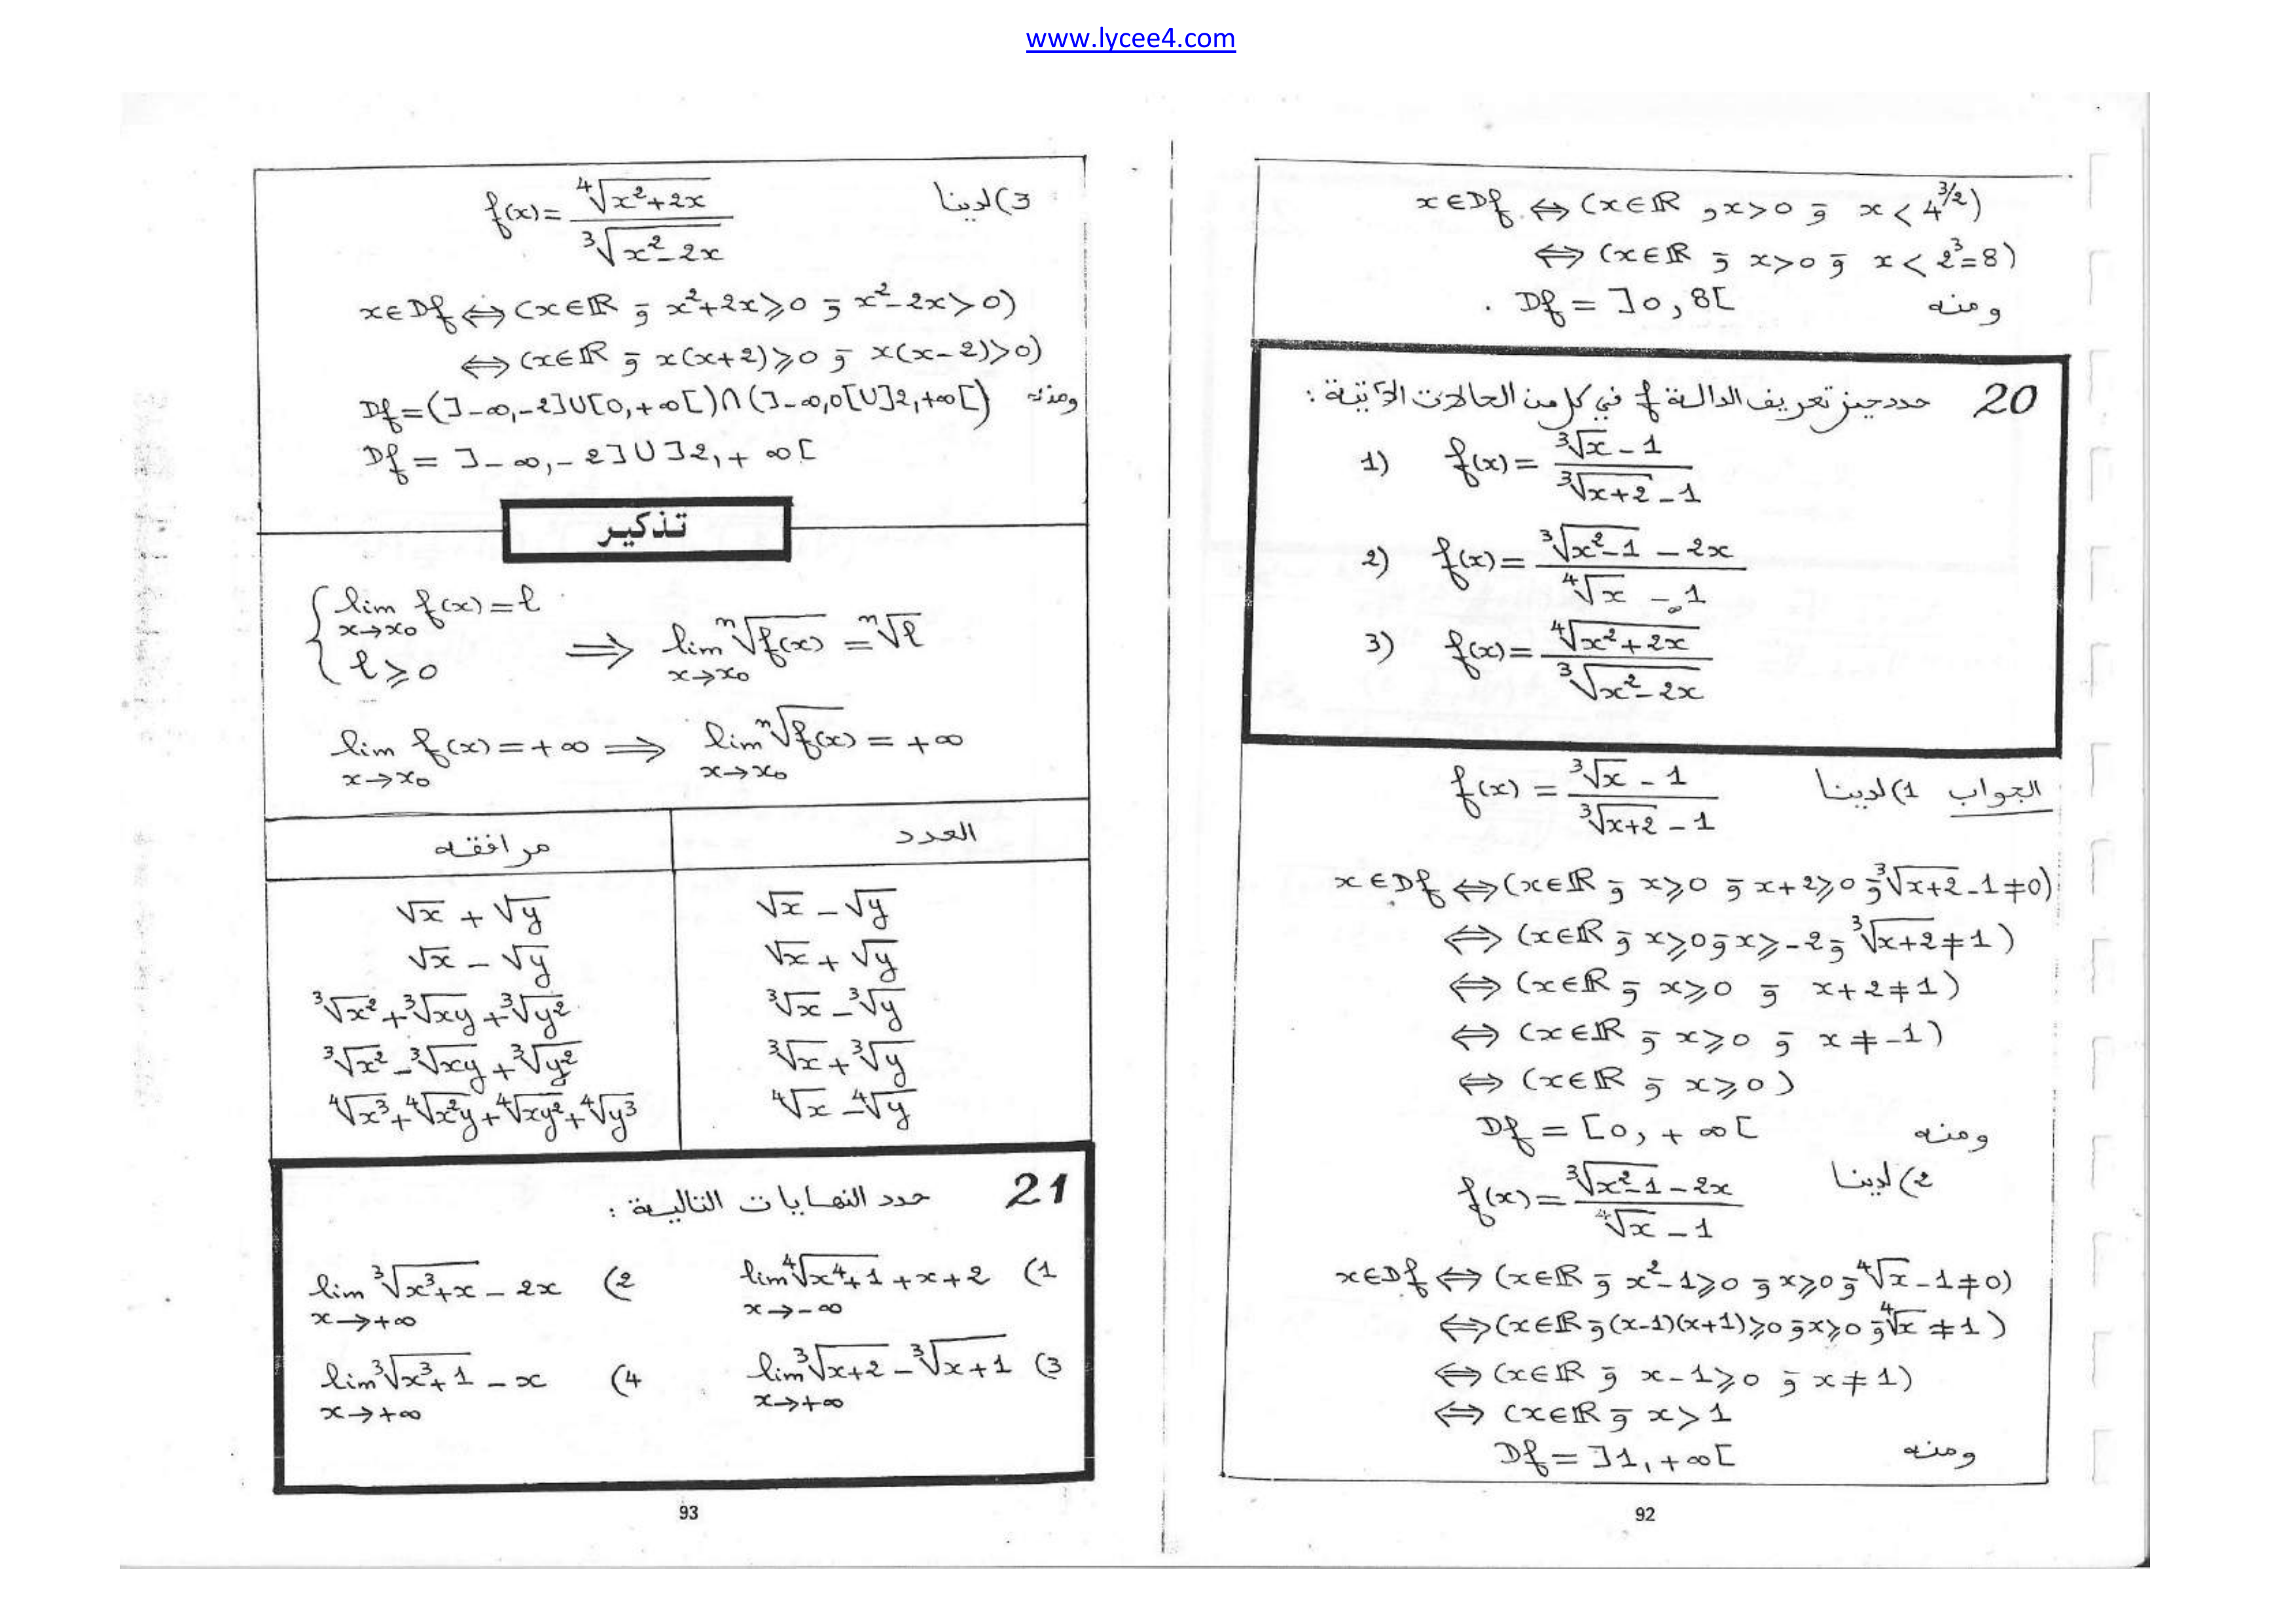 www.lycee4.com
x∈Df ⇔ (x∈ℝ , x>0 و x < 4^{3/2})
⇔ (x∈ℝ و x>0 و x < 2³=8)
ومنه Df = ]0, 8[ .
20 حدد حيز تعريف الدالة f في كل من الحالات الآتية :
1) f(x) = (∛x - 1)/(∛(x+2) - 1)
2) f(x) = (∛(x²-1) - 2x)/(∜x - 1)
3) f(x) = ∜(x²+2x)/∛(x²-2x)
الجواب 1) لدينا f(x) = (∛x - 1)/(∛(x+2) - 1)
x∈Df ⇔ (x∈ℝ و x⩾0 و x+2⩾0 و ∛(x+2) -1≠0)
⇔ (x∈ℝ و x⩾0 و x⩾-2 و ∛(x+2) ≠1)
⇔ (x∈ℝ و x⩾0 و x+2≠1)
⇔ (x∈ℝ و x⩾0 و x≠-1)
⇔ (x∈ℝ و x⩾0)
ومنه Df = [0, +∞[
2) لدينا f(x) = (∛(x²-1) - 2x)/(∜x - 1)
x∈Df ⇔ (x∈ℝ و x²-1⩾0 و x⩾0 و ∜x -1≠0)
⇔ (x∈ℝ و (x-1)(x+1)⩾0 و x⩾0 و ∜x ≠1)
⇔ (x∈ℝ و x-1⩾0 و x≠1)
⇔ (x∈ℝ و x>1
ومنه Df = ]1, +∞[
92
3) لدينا f(x) = ∜(x²+2x)/∛(x²-2x)
x∈Df ⇔ (x∈ℝ و x²+2x⩾0 و x²-2x>0)
⇔ (x∈ℝ و x(x+2)⩾0 و x(x-2)>0)
ومنه Df = (]-∞,-2]∪[0,+∞[)∩(]-∞,0[∪]2,+∞[)
Df = ]-∞,-2]∪]2,+∞[
تذكير
{ lim_{x→x₀} f(x) = ℓ
ℓ⩾0 ⟹ lim_{x→x₀} ⁿ√f(x) = ⁿ√ℓ
lim_{x→x₀} f(x) = +∞ ⟹ lim_{x→x₀} ⁿ√f(x) = +∞
العدد مرافقه
√x - √y √x + √y
√x + √y √x - √y
∛x - ∛y ∛x² + ∛xy + ∛y²
∛x + ∛y ∛x² - ∛xy + ∛y²
∜x - ∜y ∜x³ + ∜x²y + ∜xy² + ∜y³
21 حدد النهايات التالية :
1) lim_{x→-∞} ∜(x⁴+1) + x + 2 2) lim_{x→+∞} ∛(x³+x) - 2x
3) lim_{x→+∞} ∛(x+2) - ∛(x+1) 4) lim_{x→+∞} ∛(x³+1) - x
93